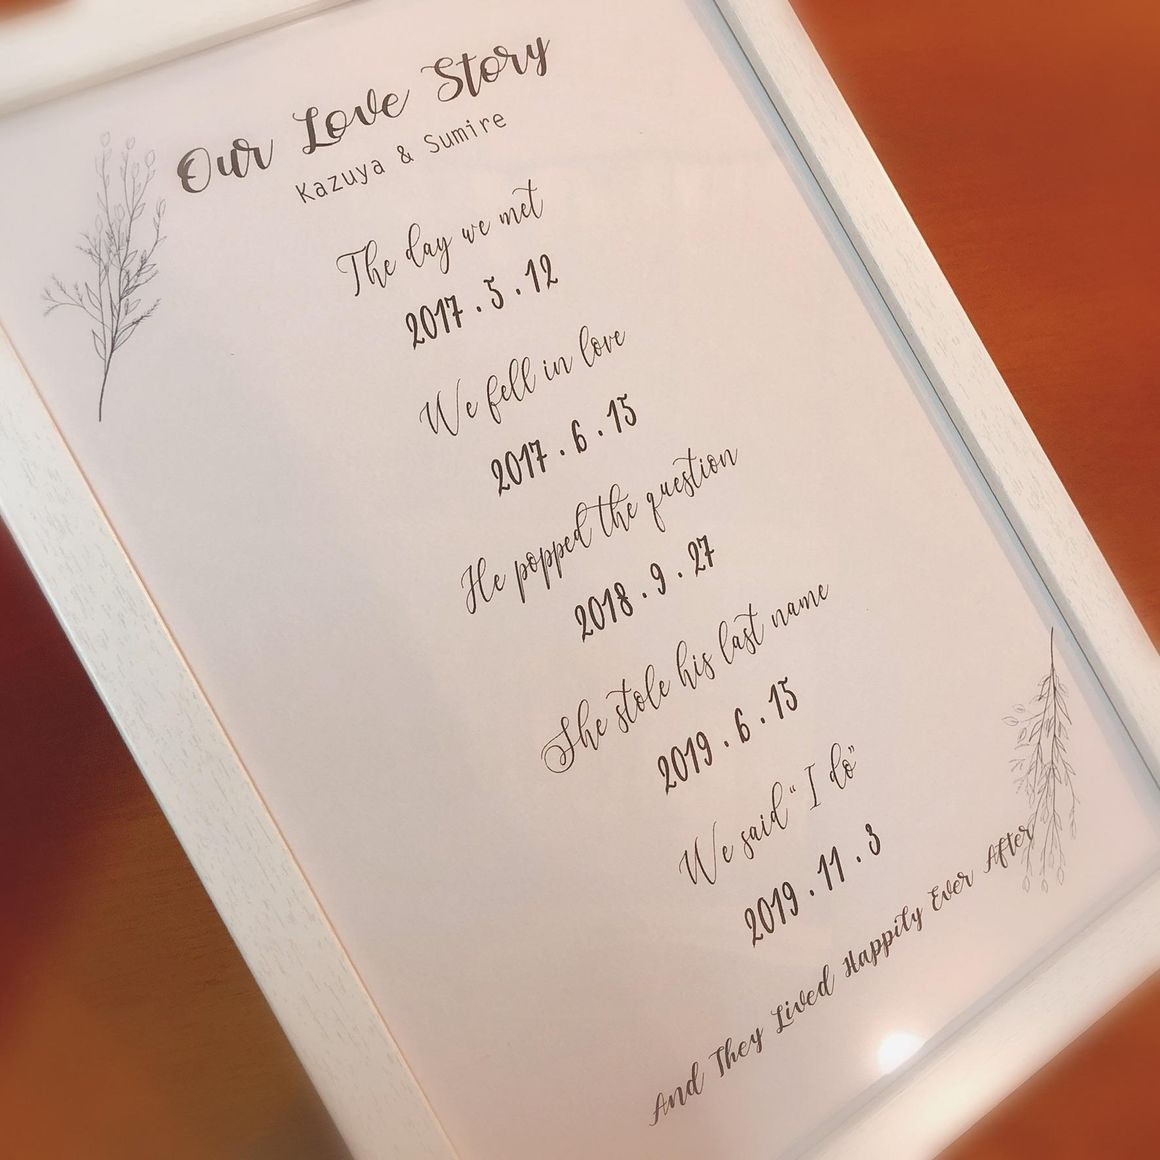 Our Love Story
Kazuya & Sumire
The day we met
2017.5.12
We fell in love
2017.6.15
He popped the question
2018.9.27
She stole his last name
2019.6.15
We said "I do"
2019.11.3
And They Lived Happily Ever After